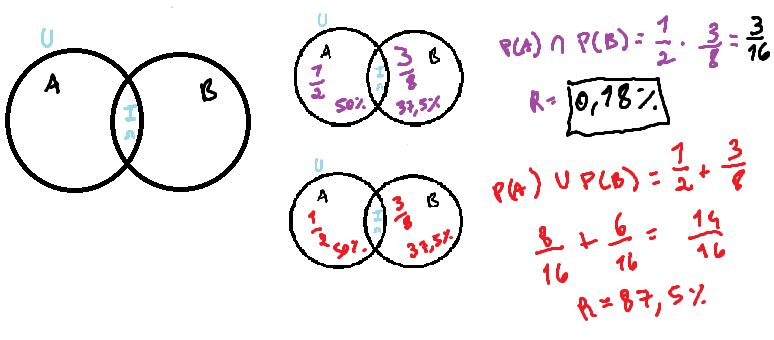 U
A
B
I
n
U
A
B
1/2
3/8
I
n
50%
37,5%
P(A) ∩ P(B) = 1/2 · 3/8 = 3/16
R = 0,18%
U
A
B
1/2
3/8
I
n
50%
37,5%
P(A) ∪ P(B) = 1/2 + 3/8
8/16 + 6/16 = 14/16
R = 87,5%